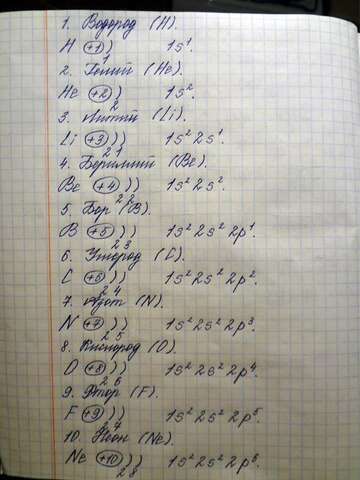 1. Водород (H).
H +1 ) 1s¹.
1
2. Гелий (He).
He +2 ) 1s².
2
3. Литий (Li).
Li +3 ) ) 1s² 2s¹.
2 1
4. Бериллий (Be).
Be +4 ) ) 1s² 2s².
2 2
5. Бор (B).
B +5 ) ) 1s² 2s² 2p¹.
2 3
6. Углерод (C).
C +6 ) ) 1s² 2s² 2p².
2 4
7. Азот (N).
N +7 ) ) 1s² 2s² 2p³.
2 5
8. Кислород (O).
O +8 ) ) 1s² 2s² 2p⁴.
2 6
9. Фтор (F).
F +9 ) ) 1s² 2s² 2p⁵.
2 7
10. Неон (Ne).
Ne +10 ) ) 1s² 2s² 2p⁶.
2 8